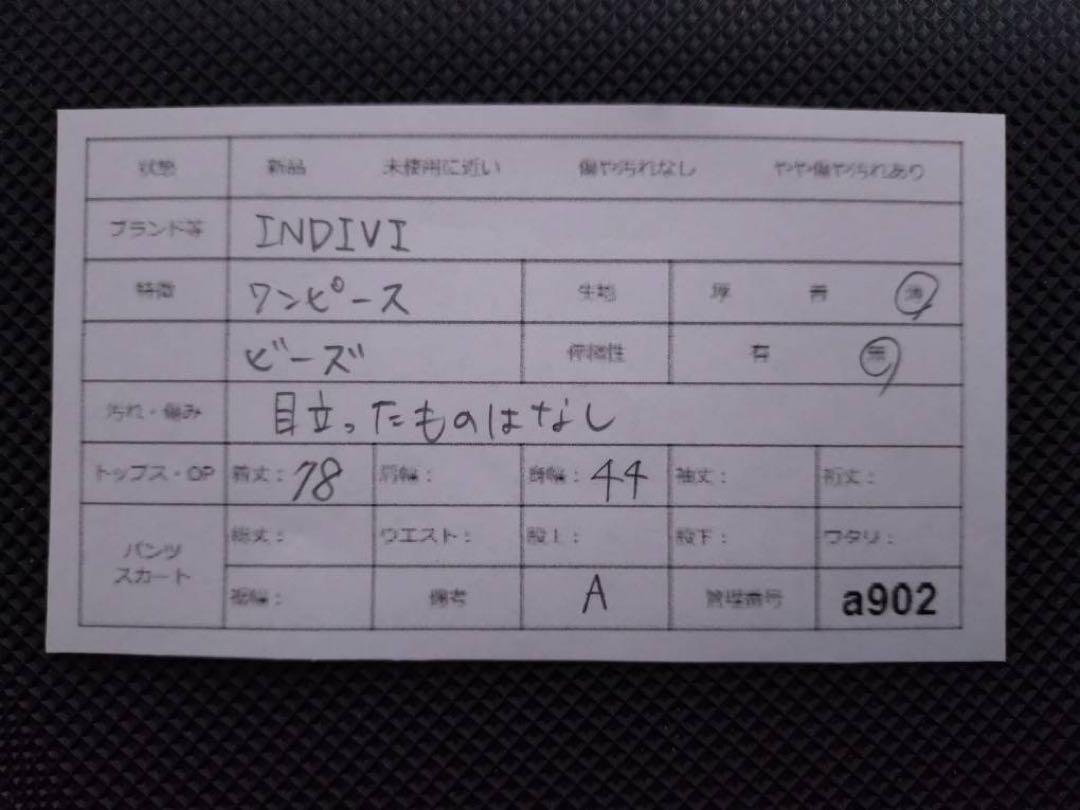 状態 新品 未使用に近い 傷や汚れなし やや傷や汚れあり
ブランド等 INDIVI
特徴 ワンピース 生地 厚 普 薄
ビーズ 伸縮性 有 無
汚れ・傷み 目立ったものはなし
トップス・OP 着丈: 78 肩幅: 身幅: 44 袖丈: 裄丈:
パンツ スカート 総丈: ウエスト: 股上: 股下: ワタリ:
裾幅: 備考 A 管理番号 a902